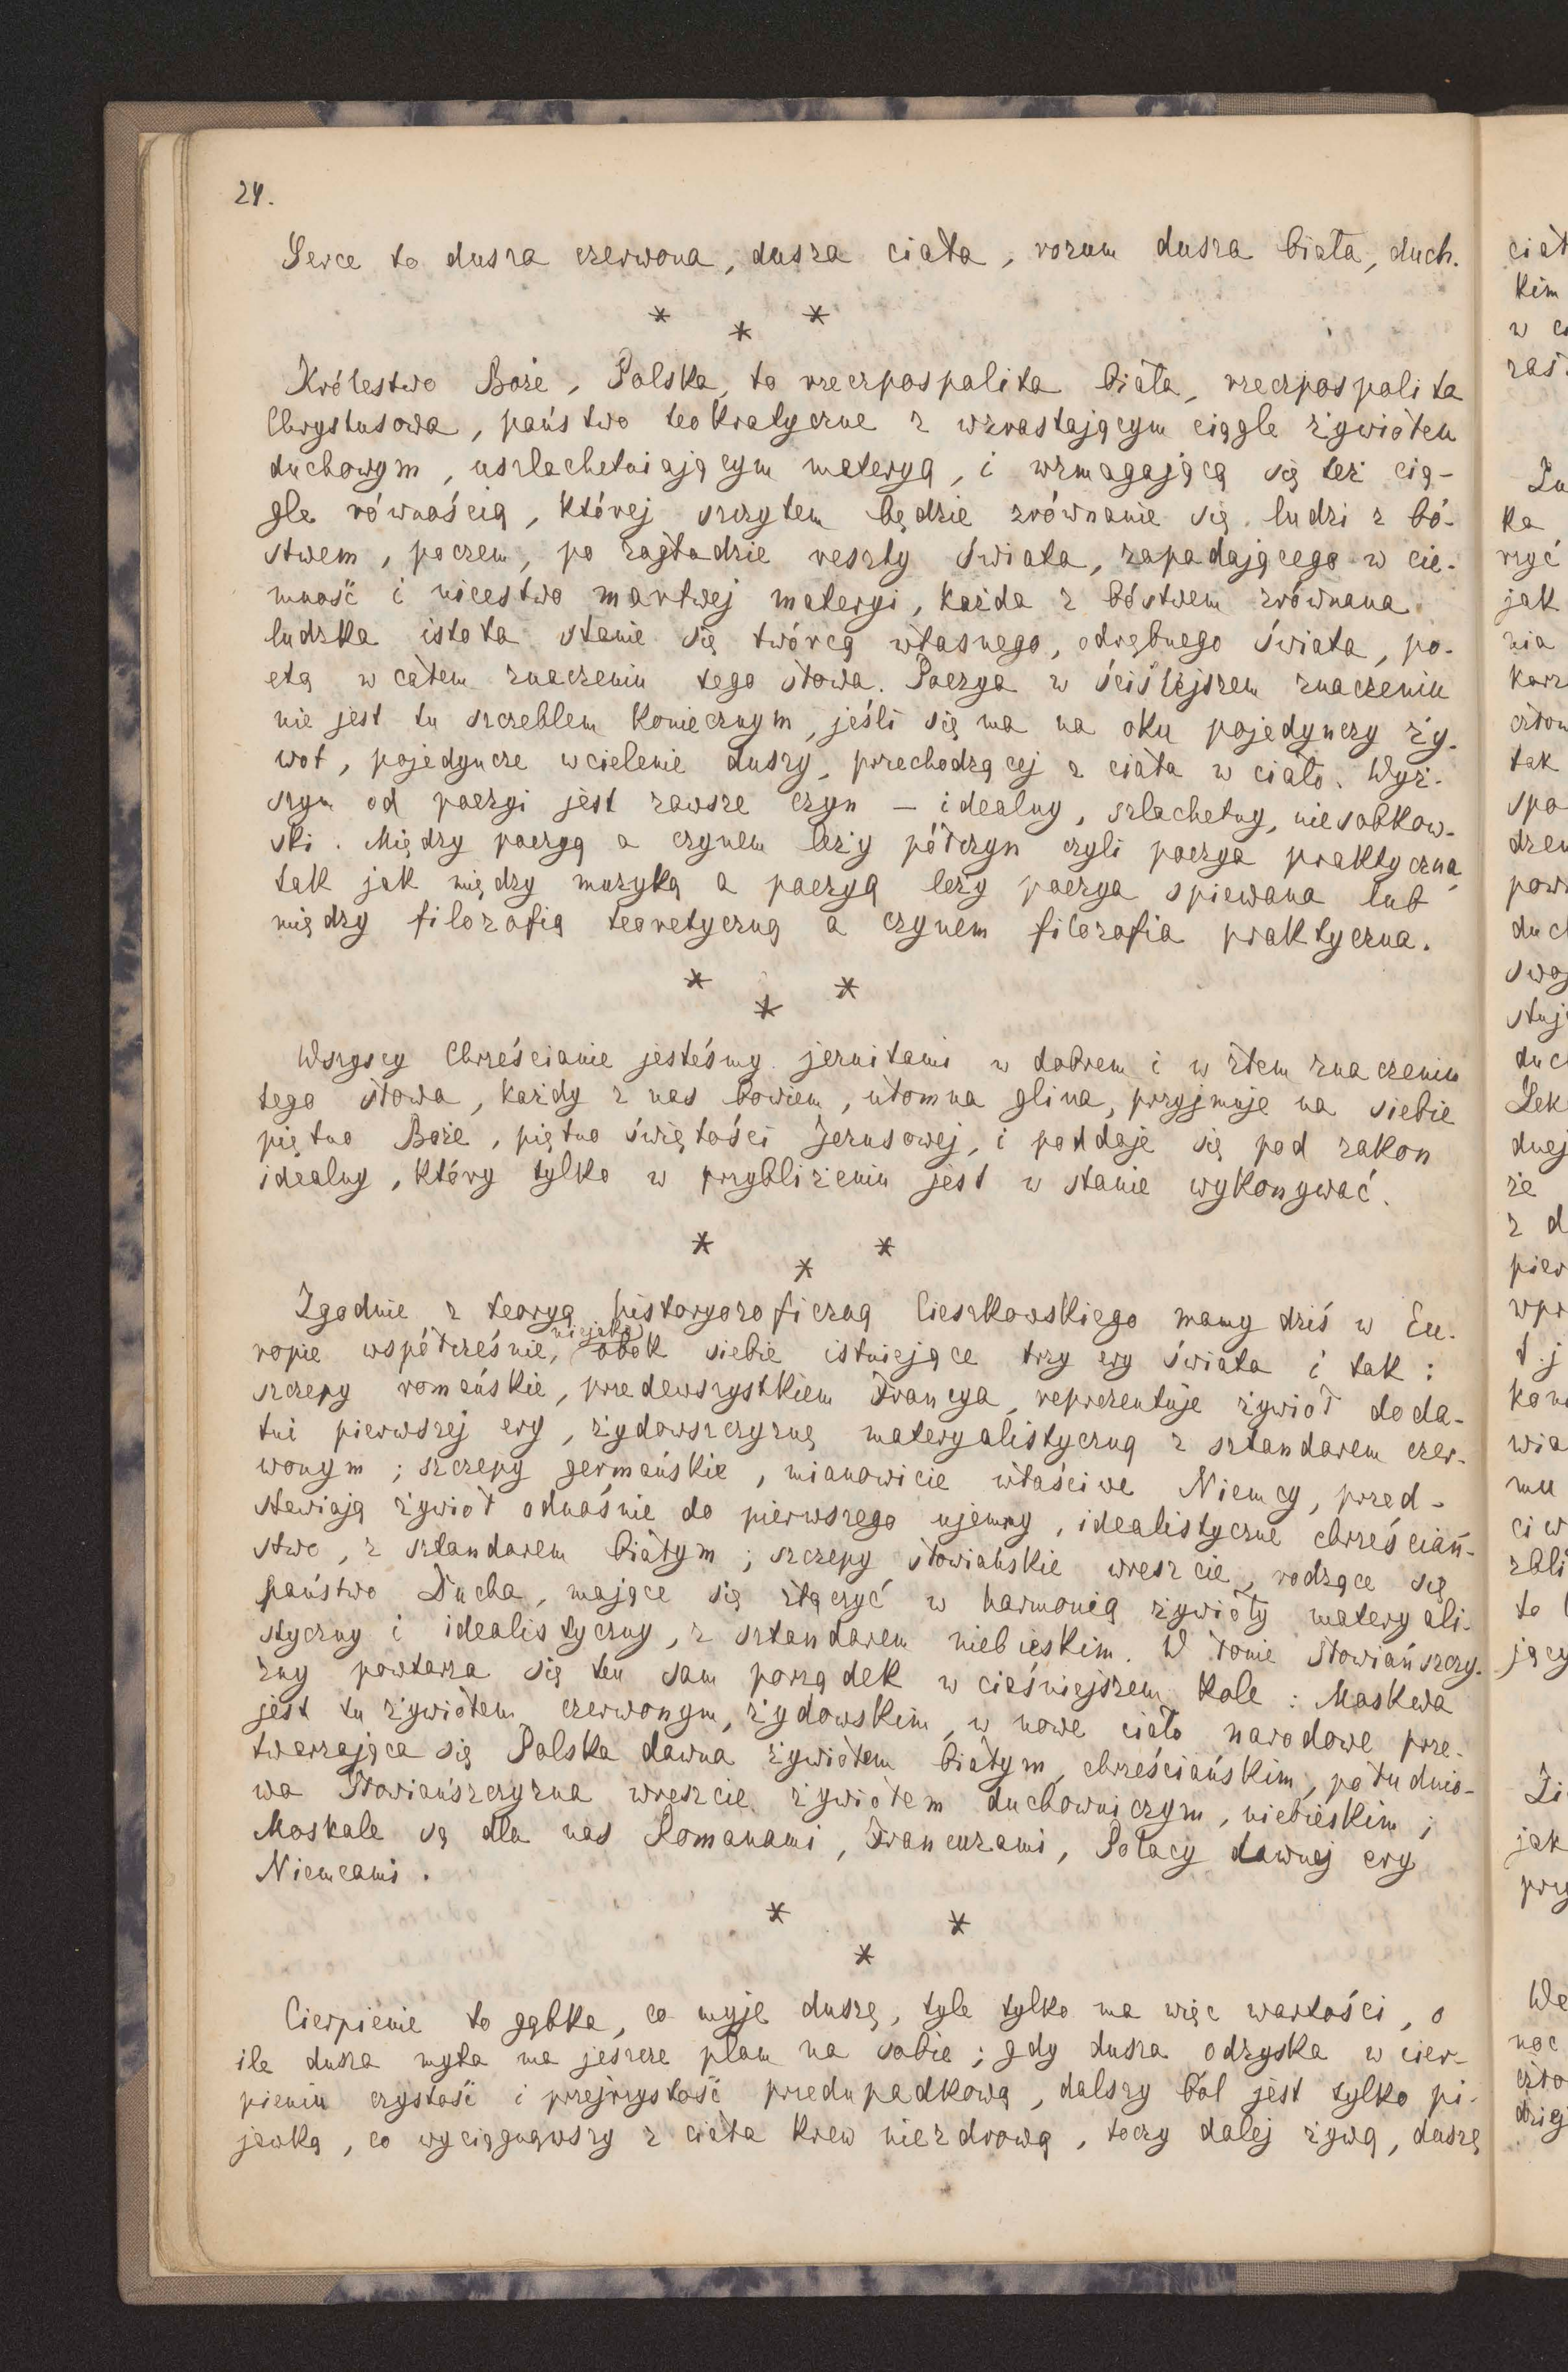 24.
Serce to dusza czerwona, dusza ciała, rozum dusza biała, duch.
* * *
Królestwo Boże, Polska, to rzeczpospolita biała, rzeczpospolita
Chrystusowa, państwo teokratyczne z wzrastającym ciągle żywiołem
duchowym, uszlachetniającym materyą, i wzmagającą się też cią-
gle równością, której szczytem będzie zrównanie się ludzi z bó-
stwem, poczem, po zagładzie reszty świata, zapadającego w cie-
mność i nicestwo martwej materyi, każda z bóstwem zrównana
ludzka istota stanie się twórcą własnego, odrębnego świata, po-
etą w całem znaczeniu tego słowa. Poezya w ściślejszem znaczeniu
nie jest tu szczeblem koniecznym, jeśli się ma na oku pojedynczy ży-
wot, pojedyncze wcielenie duszy, przechodzącej z ciała w ciało. Wyż-
szym od poezyi jest zawsze czyn – idealny, szlachetny, niesobkow-
ski. Między poezyą a czynem leży półczyn czyli poezya praktyczna,
tak jak między muzyką a poezyą leży poezya śpiewana lub
między filozofią teoretyczną a czynem filozofia praktyczna.
* * *
Wszyscy Chrześcianie jesteśmy jezuitami w dobrem i w złem znaczeniu
tego słowa, każdy z nas bowiem, ułomna glina, przyjmuje na siebie
piętno Boże, piętno świętości Jezusowej, i poddaje się pod zakon
idealny, który tylko w przybliżeniu jest w stanie wykonywać.
* * *
Zgodnie z teoryą historyozoficzną Cieszkowskiego mamy dziś w Eu-
ropie współcześnie, niejako obok siebie istniejące trzy ery świata i tak:
szczepy romańskie, przedewszystkiem Francya, reprezentuje żywioł doda-
tni pierwszej ery, żydowszczyznę materyalistyczną z sztandarem czer-
wonym; szczepy germańskie, mianowicie właściwe Niemcy, przed-
stawiają żywioł odnośnie do pierwszego ujemny, idealistyczne chrześciań-
stwo, z sztandarem białym; szczepy słowiańskie wreszcie, rodzące się
państwo Ducha, mające się złączyć w harmonią żywioły materyali-
styczny i idealistyczny, z sztandarem niebieskim. W łonie słowiańszczy-
zny powtarza się ten sam porządek w cieśniejszem kole: Moskwa
jest tu żywiołem czerwonym, żydowskim, w nowe ciało narodowe prze-
twarzająca się Polska dawna żywiołem białym, chrześciańskim, południo-
wa Słowiańszczyzna wreszcie żywiołem duchowniczym, niebieskim;
Moskale są dla nas Romanami, Francuzami, Polacy dawnej ery
Niemcami.
* * *
Cierpienie to gąbka, co myje duszę, tyle tylko ma więc wartości, o
ile dusza myta ma jeszcze plam na sobie; gdy dusza odzyska w cier-
pieniu czystość i przejrzystość przedupadkową, dalszy ból jest tylko pi-
jawką, co wyciągnąwszy z ciała krew niezdrową, toczy dalej żywą, duszę